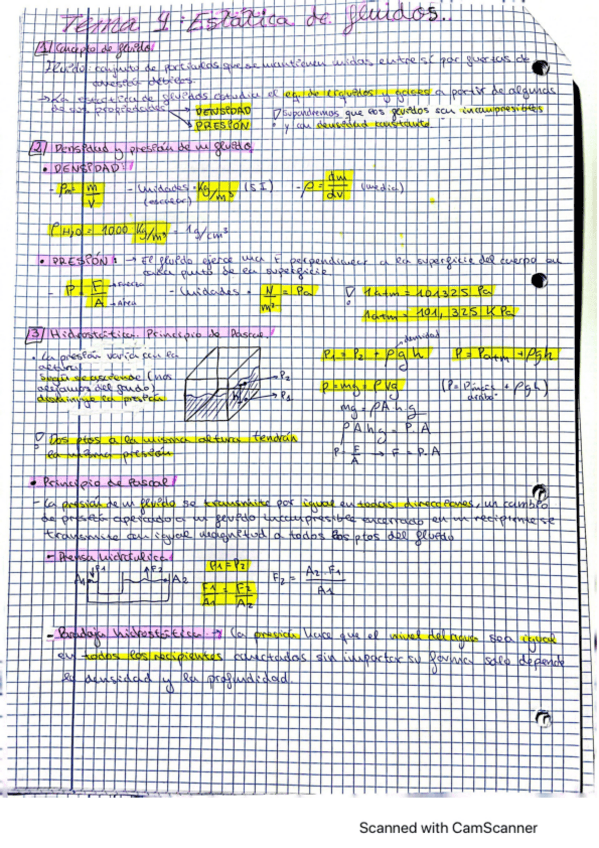 Tema 1: Estática de fluidos.
1 Concepto de fluido
Fluido conjunto de partículas que se mantienen unidas entre sí por fuerzas de
cohesión débiles.
→ La estática de fluidos estudia el eq. de líquidos y gases a partir de algunas
de sus propiedades DENSIDAD
PRESIÓN
Supondremos que los fluidos son incompresibles
y con densidad constante
2 Densidad y presión de un fluido
• DENSIDAD:
- ρm = m/V - Unidades • Kg/m³ (SI) - ρ = dm/dv (media)
(escalar)
ρ H₂O = 1000 Kg/m³ = 1g/cm³
• PRESIÓN: → El fluido ejerce una F perpendicular a la superficie del cuerpo en
cada punto de la superficie
- P = F/A → Fuerza → Área - Unidades • N/m² = Pa
1atm = 101325 Pa
1atm = 101,325 KPa
3 Hidrostática. Principio de Pascal.
• La presión varía con la
altura
Según se asciende (nos
alejamos del fondo)
disminuye la presión
P₂
P₁
h
densidad
P₁ = P₂ + ρgh P = Patm + ρgh
p = mg = ρVg
mg = ρAhg
ρAhg = P.A
P = F/A → F = P.A
Dos ptos a la misma altura tendrán
la misma presión
• Principio de Pascal
- La presión de un fluido se transmite por igual en todas direcciones, un cambio
de presión aplicado a un fluido incompresible encerrado en un recipiente se
transmite con igual magnitud a todos los ptos del fluido
- Prensa hidráulica
A₁ F₁ F₂ A₂
P₁ = P₂
F₁/A₁ = F₂/A₂
F₂ = A₂.F₁/A₁
hidrostática → La presión hace que el nivel del agua sea igual
en todos los recipientes conectados sin importar su forma solo depende
la densidad y la profundidad
Scanned with CamScanner